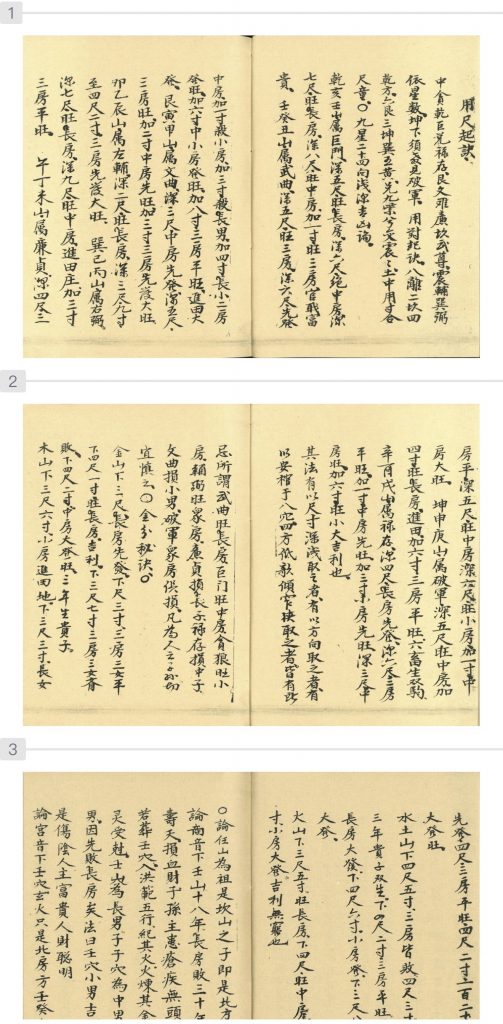 1
用尺起訣
中貪乾巨兌祿存艮文離廉坎武尊震輔巽弼
依星數坤下須發見破軍 用尉起訣八離二坎四
尺章〇九星二十四向淺深吉凶論
乾亥壬山屬巨門深五尺旺長房深六尺絕中房深
七尺旺長房深八尺旺中房加一寸旺三房官職富
貴 壬癸丑山屬武曲深五尺旺三房深六尺先發
中房加一寸發小房加三寸發長男加四寸長小二房
發旺加六寸中小房發旺加八寸三房平旺進田大
發 艮寅甲山屬文曲深三尺中房先發深五尺
三房旺加二寸中房先旺加三寸三房先後大旺
卯乙辰山屬左輔深二尺旺長房深三尺九寸
至四尺二寸三房先後大旺 巽巳丙山屬右弼
深七尺旺長房深九尺旺中房進田庄加三寸
三房平旺 午丁未山屬廉貞深四尺三
2
房平深五尺旺中房深六尺旺小房加一寸中
房大旺 坤申庚山屬破軍深五尺旺中房加
四寸旺長房進田加六寸三房平旺六畜生
辛酉戌山屬祿存深四尺長房先發深六尺三房
平旺加一寸中房先旺加三寸小房先旺深三尺中
房旺加六寸旺小大吉利也
其法有以尺寸深淺取之者有以方向取之者有
以安棺于八穴四方低歌傾窄抉取之者皆有此
忌所謂武曲旺長房巨门旺中房貪狼旺小
房輔弼旺眾房廉貞損長子祿存損中子
文曲損小男破軍眾房俱損凡為人子不可
宜慎之〇金分秘訣〇
金山下二尺長房先發下尺三寸三房三女平
下四尺一寸旺長房吉利下三尺七寸三房三女
敗下四尺二寸中房大發旺三年生貴子
木山下三尺六寸小房進田地下三尺三寸長女
3
先發四尺三房平旺四尺二寸三百二十
大發旺
水土山下四尺五寸三房皆敗四尺三
三年貴子双生下四尺二寸三房平旺
長房大發下四尺六寸小房發下三尺八
大發
火山下三尺五寸旺長房下四尺旺中房
寸小房大發吉利無窮也
〇論任山為祖是坎山之子即是北方
論商音下壬山十八年長房敗三十年
壽夭損血財子孫主患瘡疾無頭
若葬壬穴洪範五行紀其火火煉其金
灵受尅士山為長男子子穴為中男
男因先敗長房矣法曰壬穴小男吉
是傷陰人主富貴人財聰明
論宮音下壬穴玄火只是北房方壬癸